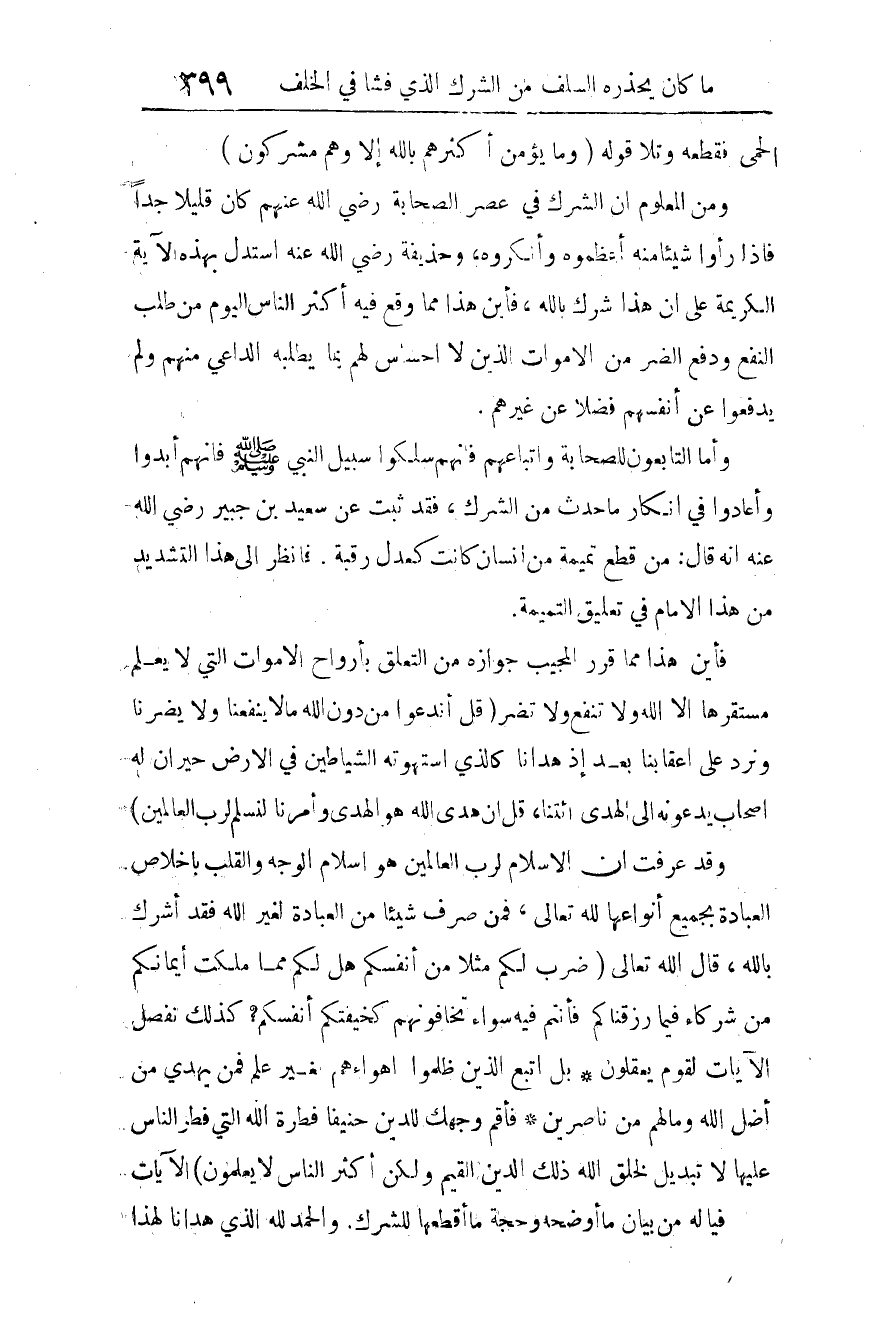 ما كان يحذره السلف من الشرك الذي فشا في الخلف ٣٩٩
الحمى فقطعه وتلا قوله ( وما يؤمن أكثرهم بالله إلا وهم مشركون )
ومن المعلوم ان الشرك في عصر الصحابة رضي الله عنهم كان قليلا جداً
فاذا رأوا شيئا منه أعظموه وأنكروه، وحذيفة رضي الله عنه استدل بهذه الآية
الكريمة على ان هذا شرك بالله ، فأين هذا مما وقع فيه أكثر الناس اليوم من طلب
النفع ودفع الضر من الاموات الذين لا احساس لهم بما يطلبه الداعي منهم ولم
يدفعوا عن أنفسهم فضلا عن غيرهم .
وأما التابعون للصحابة واتباعهم فانهم سلكوا سبيل النبي ﷺ فانهم أبدوا
وأعادوا في انكار ما حدث من الشرك ، فقد ثبت عن سعيد بن جبير رضي الله
عنه انه قال: من قطع تميمة من انسان كانت كعدل رقبة . فانظر الى هذا التشديد
من هذا الامام في تعليق التميمة.
فأين هذا مما قرر المجيب جوازه من التعلق بأرواح الاموات التي لا يعلم
مستقرها الا الله ولا تنفع ولا تضر ( قل أندعوا من دون الله مالا ينفعنا ولا يضرنا
ونرد على اعقابنا بعد إذ هدانا كالذي استهوته الشياطين في الارض حيران له
اصحاب يدعونه الى الهدى ائتنا، قل ان هدى الله هو الهدى وأمرنا لنسلم لرب العالمين)
وقد عرفت ان الاسلام لرب العالمين هو اسلام الوجه والقلب باخلاص
العبادة بجميع أنواعها لله تعالى ، فمن صرف شيئا من العبادة لغير الله فقد أشرك
بالله ، قال الله تعالى ( ضرب لكم مثلا من أنفسكم هل لكم مما ملكت أيمانكم
من شركاء فيما رزقناكم فأنتم فيه سواء تخافونهم كخيفتكم أنفسكم؟ كذلك نفصل
الآيات لقوم يعقلون * بل اتبع الذين ظلموا اهواءهم بغير علم فمن يهدي من
أضل الله ومالهم من ناصرين * فأقم وجهك للدين حنيفا فطرة الله التي فطر الناس
عليها لا تبديل لخلق الله ذلك الدين القيم ولكن أكثر الناس لا يعلمون) الآيات
فيا له من بيان ما أوضحه وحجة ما أقطعها للشرك. والحمد لله الذي هدانا لهذا